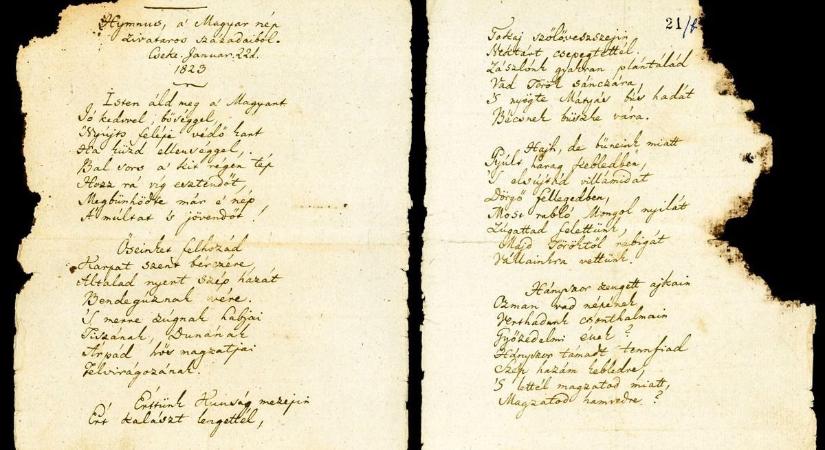 Hymnus, a' Magyar nép
zivataros századaiból.
Cseke. Januar. 22d.
1823
Isten áld meg a' Magyart
Jó kedvvel, bőséggel,
Nyújts feléje védő kart
Ha küzd ellenséggel;
Bal sors a' kit régen tép
Hozz rá víg esztendőt,
Megbűnhödte már e' nép
A' múltat 's jövendőt!
Őseinket felhozád
Kárpát szent bérczére,
Általad nyert szép hazát
Bendegúznak vére.
'S merre zúgnak habjai
Tiszának, Dunának
Árpád hős magzatjai
Felvirágozának.
Értünk Kunság mezejin
Ért kalászt lengettél,
21/
Tokaj szőlővesszejin
Nektárt csepegtettél.
Zászlónk gyakran plántálád
Vad Török sánczára,
'S nyögte Mátyás bús hadát
Bécsnek büszke vára.
Hajh, de bűneink miatt
Gyúlt harag kebledben,
'S elsújtád villámidat
Dörgő fellegedben,
Most rabló Mongol nyilát
Zúgattad felettünk,
Majd Töröktől rabigát
Vállainkra vettünk.
Hányszor zengett ajkain
Ozman vad népének
Verthadunk csonthalmain
Győzedelmi ének?
Hányszor támadt tennfiad
Szép hazám kebledre,
'S lettél magzatod miatt,
Magzatod hamvedre?